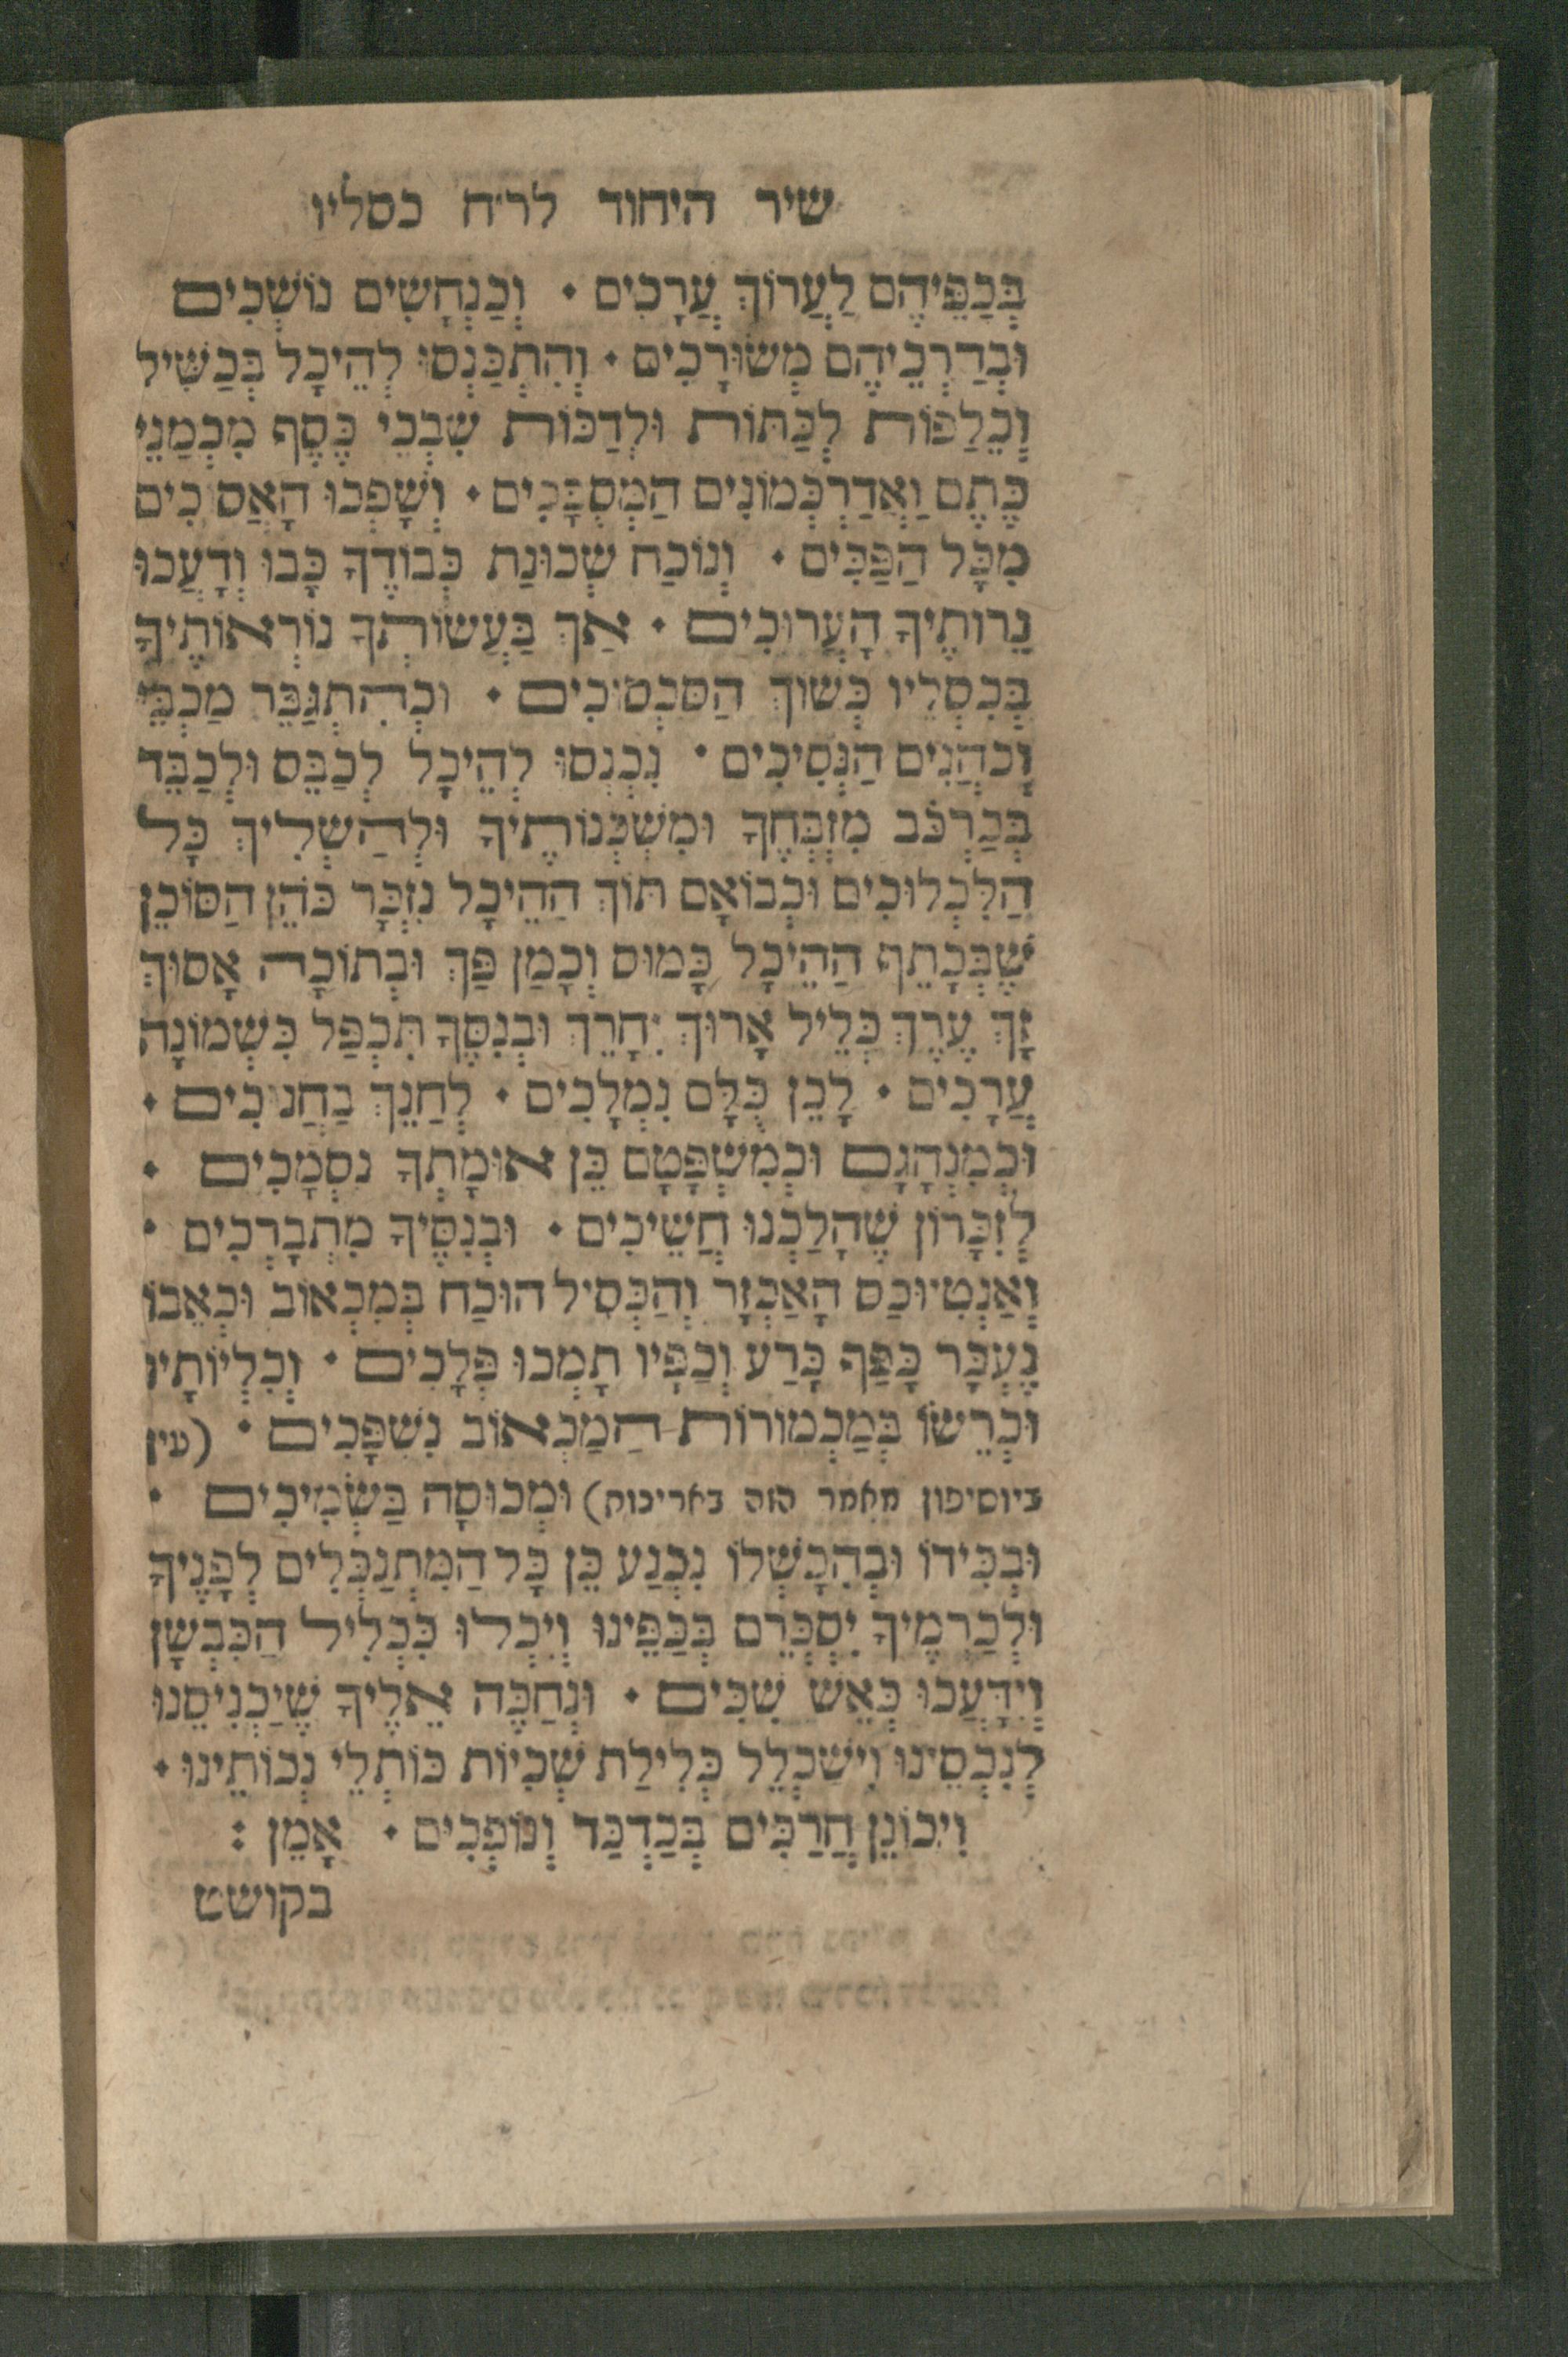 שיר היחוד לר״ח כסליו
בְּכַפֵּיהֶם לַעֲרוֹךְ עֲרָכִים • וְכַנְחָשִׁים נוֹשְׁכִים
וּבְדַרְכֵיהֶם מְשׂוּרָכִים • וְהִתְכַּנְסוּ לְהֵיכָל בְּכַשִּׁיל
וְכֵלַפּוֹת לְכַּתּוֹת וּלְדַכּוֹת שִׂבְכֵי כֶּסֶף מִכְמַנֵּי
כֶּתֶם וַאֲדַרְכְּמוֹנִים הַמְסֻבָּכִים • וְשָׁפְכוּ הָאֲסוּכִים
מִכָּל הַפַּכִּים • וְנוֹכַח שְׁכוּנַת כְּבוֹדֶךָ כָּבוּ וְדָעֲכוּ
נֵרוֹתֶיךָ הָעֲרוּכִים • אַךְ בַּעֲשׂוֹתְךָ נוֹרְאוֹתֶיךָ
בְּכִסְלֵיו כְּשׁוֹךְ הַסִּכְסוּכִים • וּכְהִתְגַּבֵּר מַכְבֵּי
וְכֹהֲנִים הַנְּסִיכִים • נִכְנְסוּ לְהֵיכָל לְכַבֵּס וּלְכַבֵּד
בְּכַרְכֹּב מִזְבְּחֶךָ וּמִשְׁכְּנוֹתֶיךָ וּלְהַשְׁלִיךְ כָּל
הַלִּכְלוּכִים וּכְבוֹאָם תּוֹךְ הַהֵיכָל נִזְכָּר כֹּהֵן הַסּוֹכֵן
שֶׁבְּכָתֵף הַהֵיכָל כָּמוּס וְכָמַן פַּךְ וּבְתוֹכָהּ אָסוּךְ
זָךְ עֶרֶךְ כְּלֵיל אָרוּךְ יְחָרֵךְ וּבְנִסֶּךָ תִּכְפַּל כִּשְׁמוֹנָה
עֲרָכִים • לָכֵן כֻּלָּם נִמְלָכִים • לְחַנֵּךְ בַּחֲנוּכִים •
וּכְמִנְהָגָם וּכְמִשְׁפָּטָם כֵּן אוּמָתְךָ נִסְמָכִים •
לְזִכָּרוֹן שֶׁהָלַכְנוּ חֲשֵׁיכִים • וּבְנִסֶּיךָ מִתְבָּרְכִים •
וְאַנְטִיוּכַס הָאַכְזָר וְהַכְּסִיל הוּכַח בְּמִכְאוֹב וּכְאֵבוֹ
נֶעְכָּר כָּפַף כָּרַע וְכַפָּיו תָמְכוּ פְּלָכִים • וְכִלְיוֹתָיו
וּכְרֵשׂוֹ בְּמַכְמוֹרוֹת הַמַכְאוֹב נִשְׁפָּכִים • (עין
ביוסיפון מאמר הזה באריכות) וּמְכוּסָה בַּשְׂמִיכִים •
וּבְכִידוֹ וּבְהִכָּשְׁלוֹ נִכְנַע כֵּן כָּל הַמִּתְנַכְּלִים לְפָנֶיךָ
וּלְכַרְמֶיךָ יִסְכְּרֵם בְּכַפֵּינוּ וְיִכְלוּ כִּכְלִיל הַכִּבְשָׁן
וְיִדָּעֲכוּ כְּאֵשׁ שִׂכִּים • וּנְחַכֶּה אֵלֶיךָ שֶׁיַכְנִיסֵנוּ
לִנְכָסֵינוּ וִישַׁכְלֵל כְּלִילַת שְׂכִיּוֹת כּוֹתְלֵי נְכוֹתֵינוּ •
וִיכוֹנֵן חֲרַכִּים בְּכַדְכַּד וְנוֹפְכִים • אָמֵן :
בקושט